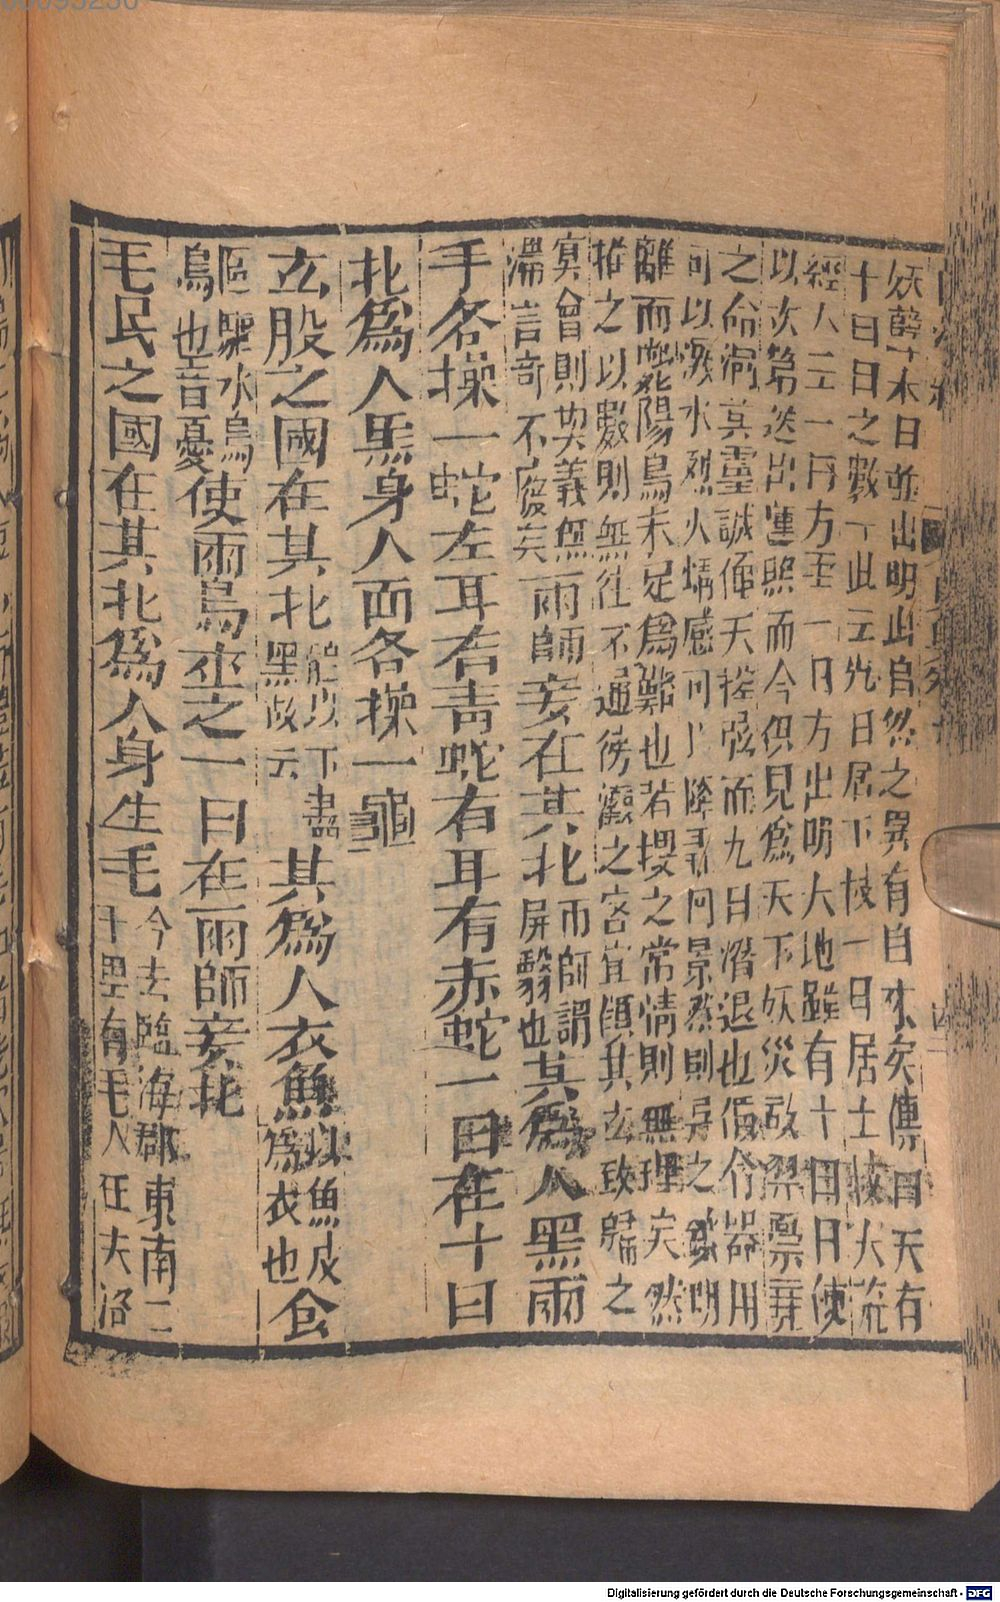 妖孽十末日並出明此自然之異有自來矣傳曰天有
十日日之數十此云九日居下枝一日居上枝大荒
經又云一日方至一日方出明天地雖有十日日使
以次第迭出運照而今俱見爲天下妖災故羿稟堯
之命洞其靈誠仰天控弦而九日潛退也假令器用
可以激水烈火精感可以降霜回景然則羿之鑠明
離而斃陽烏未足爲難也若搜之常情則無理矣然
推之以數則無往不通徬觀之客宜領其玄致歸之
冥會則奥義無
滯言奇不廢矣雨師妾在其北雨師謂
屏翳也其爲人黑兩
手各操一蛇左耳有青蛇右耳有赤蛇一曰在十日
北爲人黑身人面各操一龜
玄股之國在其北髀以下盡
黑故云其爲人衣魚以魚皮
爲衣也食
䳼䳼水鳥
也音憂使兩鳥夾之一曰在雨師妾北
毛民之國在其北爲人身生毛今去臨海郡東南二
千里有毛人在大洛
Digitalisierung gefördert durch die Deutsche Forschungsgemeinschaft - DFG